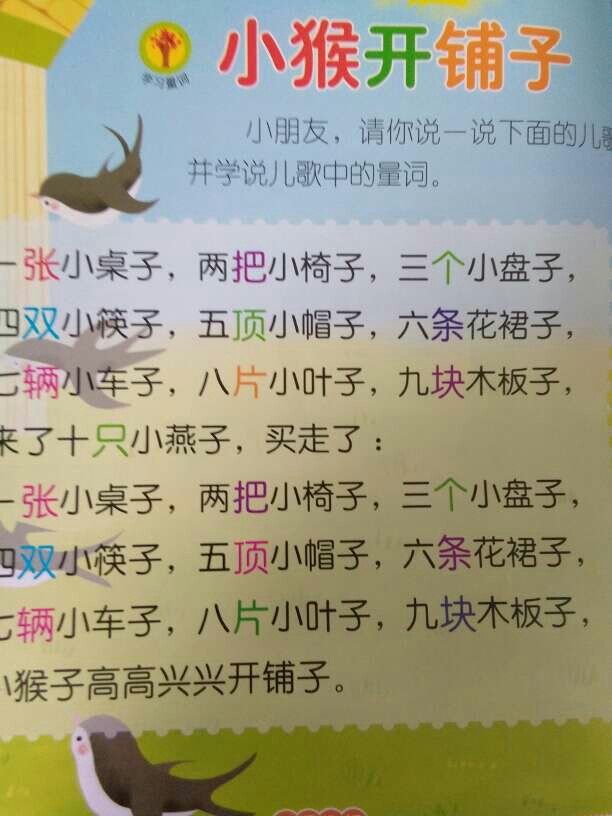 学习量词
小猴开铺子
小朋友，请你说一说下面的儿歌
并学说儿歌中的量词。
一张小桌子，两把小椅子，三个小盘子，
四双小筷子，五顶小帽子，六条花裙子，
七辆小车子，八片小叶子，九块木板子，
来了十只小燕子，买走了：
一张小桌子，两把小椅子，三个小盘子，
四双小筷子，五顶小帽子，六条花裙子，
七辆小车子，八片小叶子，九块木板子，
小猴子高高兴兴开铺子。